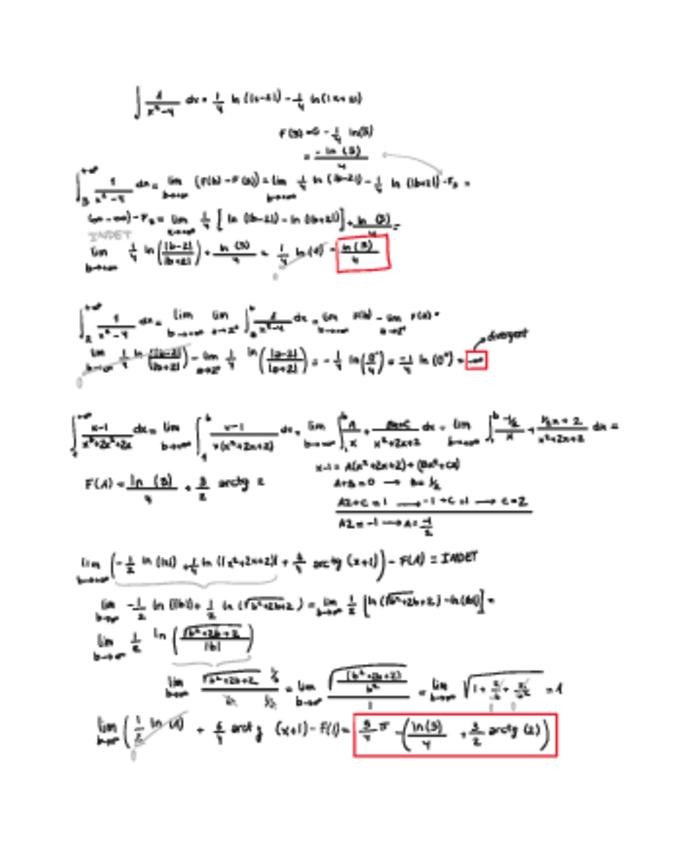 ∫ 1/(x²-4) dx = 1/4 ln(|x-2|) - 1/4 ln(|x+2|)
F(3) = 0 - 1/4 ln(5)
= -ln(5)/4
∫₃^{+∞} 1/(x²-4) dx = lim_{b→+∞} (F(b) - F(3)) = lim_{b→+∞} 1/4 ln(|b-2|) - 1/4 ln(|b+2|) - F₃ =
(∞-∞) - F₃ = lim_{b→+∞} 1/4 [ln(|b-2|) - ln(|b+2|)] + ln(5)/4 =
INDET
lim_{b→+∞} 1/4 ln(|b-2|/|b+2|) + ln(5)/4 = 1/4 ln(1) = ln(5)/4
0
∫₂^{+∞} 1/(x²-4) dx = lim_{b→+∞} lim_{a→2⁺} ∫ₐᵇ 1/(x²-4) dx = lim_{b→+∞} F(b) - lim_{a→2⁺} F(a) =
divergent
lim_{b→+∞} 1/4 ln(|b-2|/|b+2|) - lim_{a→2⁺} 1/4 ln(|a-2|/|a+2|) = -1/4 ln(0⁺/4) = -1/4 ln(0⁺) = -∞
0
∫₁^{+∞} (x-1)/(x³+2x²+2x) dx = lim_{b→+∞} ∫₁ᵇ (x-1)/(x(x²+2x+2)) dx = lim_{b→+∞} ∫₁ᵇ A/x + (Bx+C)/(x²+2x+2) dx = lim_{b→+∞} ∫₁ᵇ (-1/2)/x + (1/2x+2)/(x²+2x+2) dx =
x-1 = A(x²+2x+2) + (Bx²+Cx)
F(1) = ln(5)/4 + 3/2 arctg 2
A+B=0 → B=1/2
A2+C=1 → -1+C=1 → C=2
A2=-1 → A=-1/2
lim_{b→+∞} (-1/2 ln(|x|) + 1/4 ln(|x²+2x+2|) + arctg(x+1)) - F(1) = INDET
lim_{b→∞} -1/2 ln(|b|) + 1/2 ln(√(b²+2b+2)) = lim_{b→∞} 1/2 [ln(√(b²+2b+2)) - ln(|b|)] =
lim_{b→∞} 1/2 ln(√(b²+2b+2)/|b|)
lim_{b→∞} √(b²+2b+2) = lim_{b→∞} √((b²+2b+2)/b²)/1 = lim_{b→∞} √(1+2/b+2/b²) = 1
lim_{b→∞} (1/2 ln(1) + arctg (x+1) - F(1) = 3/4 π - (ln(5)/4 + 3/2 arctg(2))
0